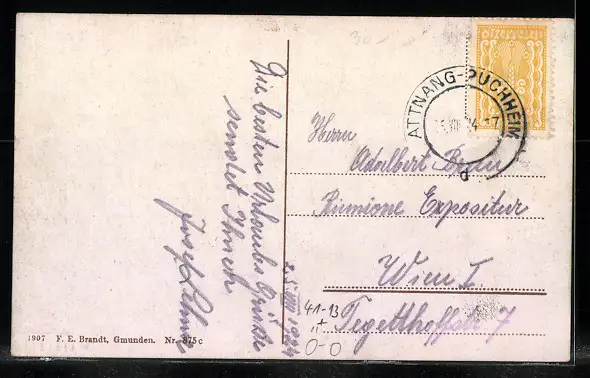 Die besten Urlaubs Grüße
sendet Ihnen
Josef
25.VIII 1924
österreich
ATTNANG-PUCHHEIM
d
Herrn
Adalbert
Expositur
Wien I.
Tegetthoffstr 7
41-13
+
0-0
1907 F. E. Brandt, Gmunden. Nr. 875c